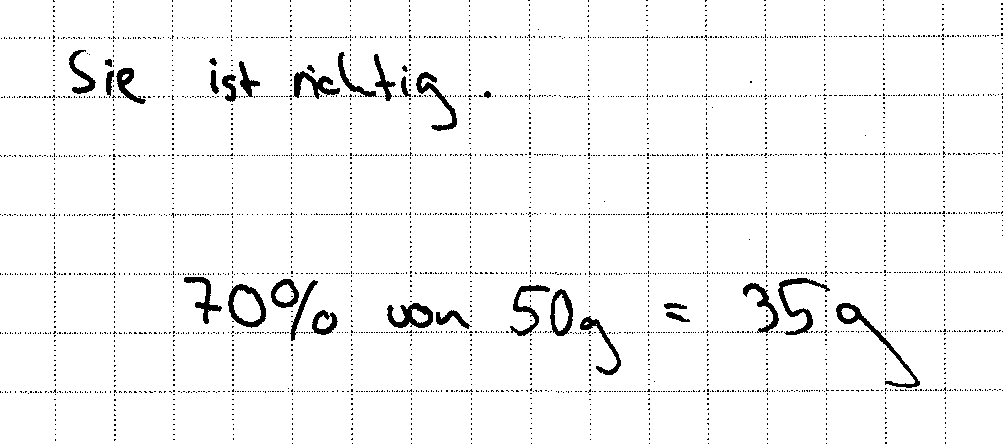 Sie ist richtig.
70% von 50g = 35g